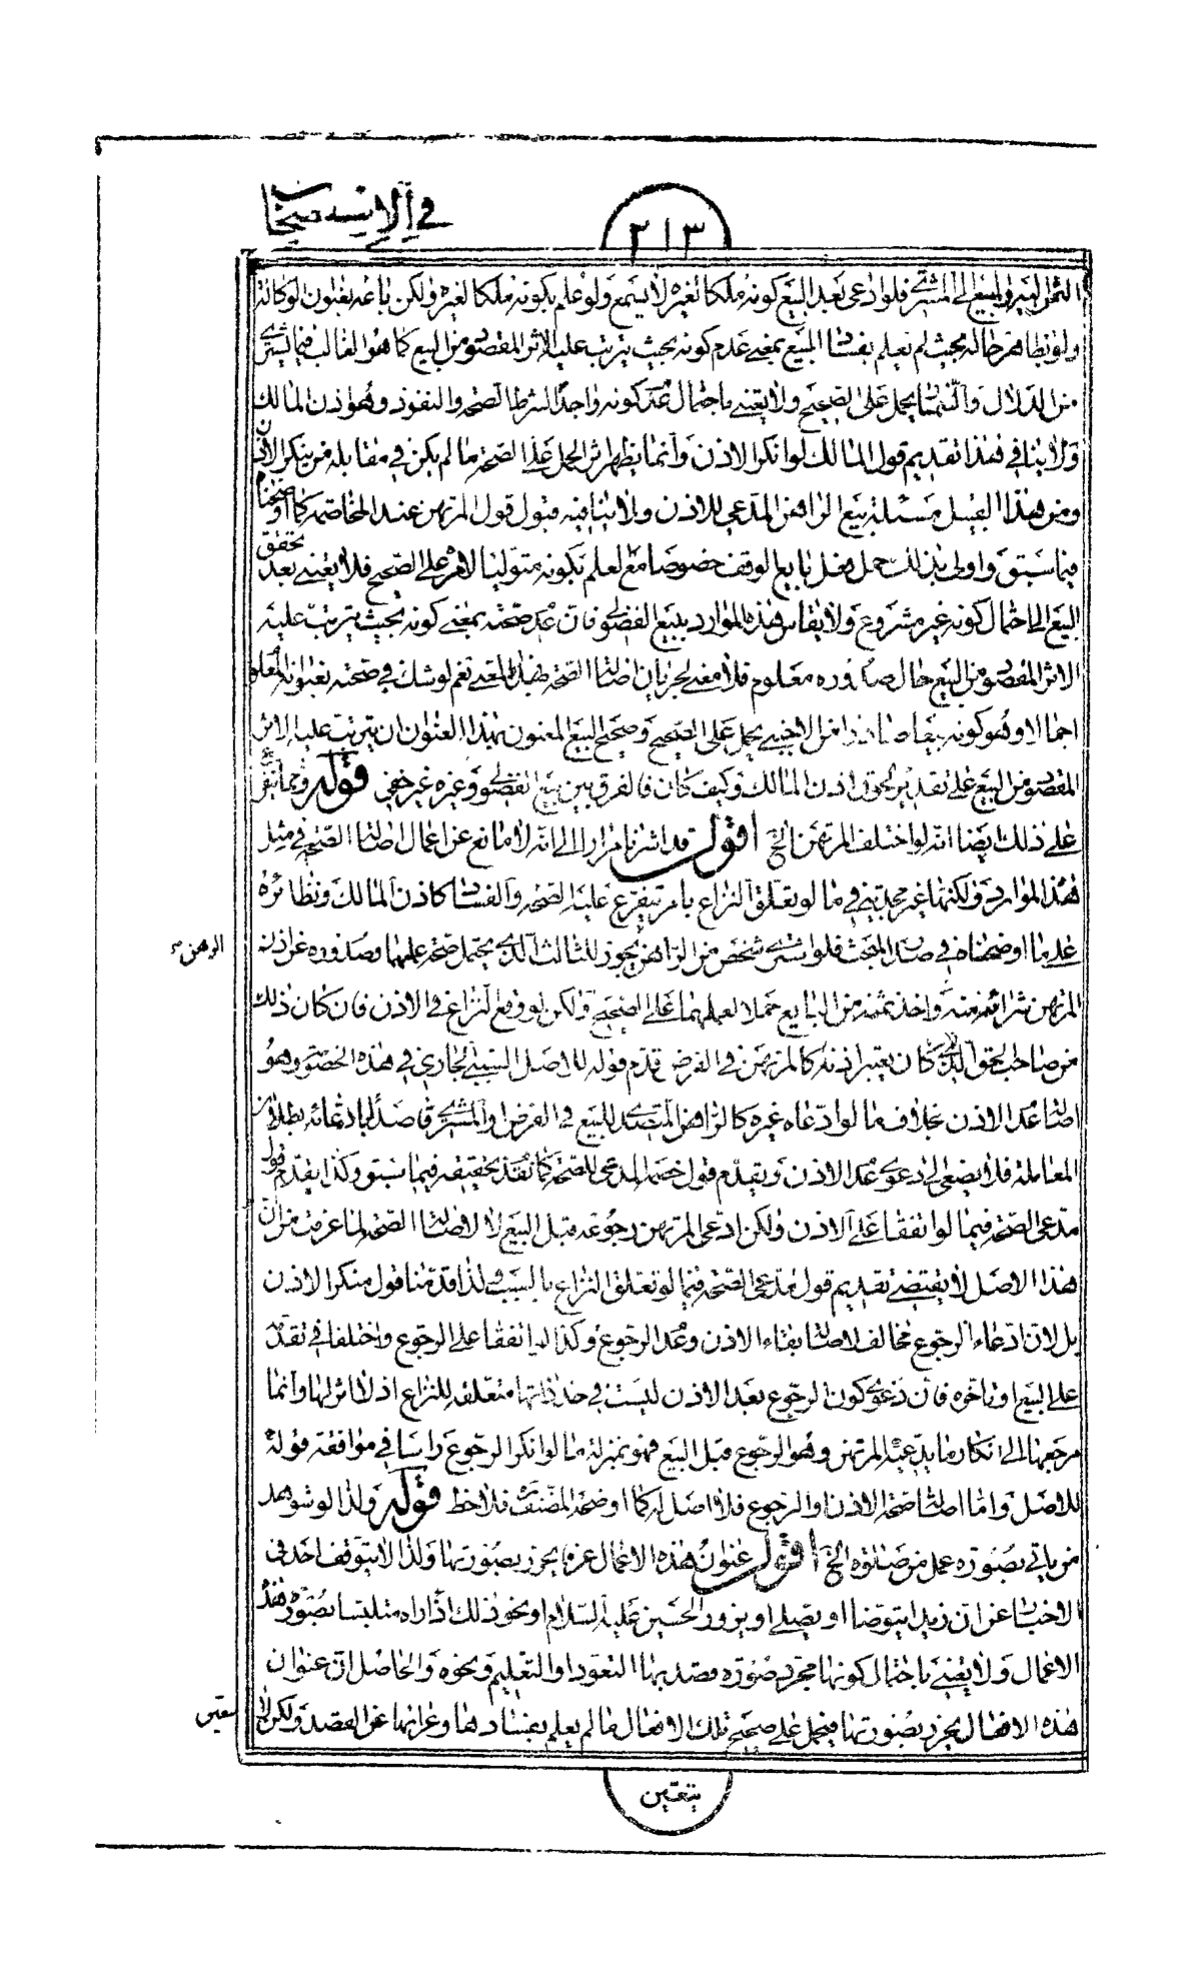 في الاستصحاب
٢١٣
الثمن اليه والمبيع الى المشتري فلو ادعى بعد البيع كونه ملكا لغيره لا يسمع ولو علم بكونه ملكا لغيره ولكن باعه بعنوان الوكالة
ولو بظاهر حاله بحيث لم يعلم بفساد البيع بمعنى عدم كونه بحيث يترتب عليه الاثر المقصود من البيع كما هو الغالب فيما يشترى
من الدلال والسمسار يحمل على الصحيح ولا يعتنى باحتمال عدم كونه واجدا لشرط الصحة والنفوذ وهو اذن المالك
ولا ينافي هذا تقديم قول المالك لو انكر الاذن وانما يظهر اثر الحمل على الصحة ما لم يكن في مقابله من ينكر الاذن
ومن هذا القبيل مسئلة بيع الراهن المدعي للاذن ولا ينافيه قبول قول المرتهن عند المخاصمة كما اوضحناه
فيما سبق واولى بذلك حمل فعل بايع الوقف خصوصا مع العلم بكونه متوليا لامره على الصحيح فلا يعتنى بعد تحقق
البيع الى احتمال كونه غير مشروع ولا يقاس هذه الموارد ببيع الفضولي فان عدم صحته بمعنى كونه بحيث يترتب عليه
الاثر المقصود من البيع حال صدوره معلوم فلا معنى لجريان اصالة الصحة بهذا المعنى نعم لو شك في صحته بعنوانه المعلوم
اجمالا وهو كونه بيعا صادرا من الاجنبي يحمل على الصحيح وصحيح البيع المعنون بهذا العنوان ان يترتب عليه الاثر
المقصود من البيع على تقدير لحوق اذن المالك وكيف كان فالفرق بين بيع الفضولي وغيره غير خفي قوله ومما يتفرع
على ذلك ايضا انه لو اختلف المرتهن الخ اقول قد اشرنا مرارا الى انه لا مانع عن اعمال اصالة الصحة في مثل
هذه الموارد ولكنها غير مجدية في ما لو تعلق النزاع بامر يتفرع عليه الصحة والفساد كاذن المالك ونظائره
على ما اوضحناه في صدر المبحث فلو اشترى شخص من الراهن يجوز للثالث الذي يحتمل صحة عملهما وصدوره عن اذن
الرهن
المرتهن شرائه منه واخذ ثمنه من البايع حملا لعملهما على الصحيح ولكن لو وقع النزاع في الاذن فان كان ذلك
من صاحب الحق الذي كان يعتبر اذنه كالمرتهن في الفرض قدم قوله للاصل السببي الجاري في هذه الخصومة وهو
اصالة عدم الاذن بخلاف ما لو ادعاه غيره كالراهن المتصدي للبيع في الفرض والمشتري قاصدا بادعائه بطلان
المعاملة فلا يصغى الى دعوى عدم الاذن ويقدم قول خصمه المدعي للصحة كما تقدم تحقيقه فيما سبق وكذا يقدم قول
مدعي الصحة فيما لو اتفقا على الاذن ولكن ادعى المرتهن رجوعه قبل البيع لا لاصالة الصحة لما عرفت من ان
هذا الاصل لا يقتضي تقديم قول مدعي الصحة فيما لو تعلق النزاع بالسبب ولذا قدمنا قول منكر الاذن
بل لان ادعاء الرجوع مخالف لاصالة بقاء الاذن وعدم الرجوع وكذا لو اتفقا على الرجوع واختلفا في تقدمه
على البيع او تاخره فان دعوى كون الرجوع بعد الاذن ليست في حد ذاتها متعلقة للنزاع اذ لا اثر لها وانما
مرجعها الى انكار ما يدعيه المرتهن وهو الرجوع قبل البيع فهو بمنزلة ما لو انكر الرجوع راسا في موافقة قوله
للاصل واما اصالة صحة الاذن او الرجوع فلا اصل له كما اوضحه المصنف فلاحظ قوله ولذا لو شوهد
من ياتي بصورة عمل من صلوة الخ اقول عنوان هذه الاعمال عرفا يحرز بصورتها ولذا لا يتوقف احد في
الاخبار عن ان زيدا يتوضا او يصلي او يزور الحسين عليه السلام او نحو ذلك اذا راه متلبسا بصورة هذه
الاعمال ولا يعتنى باحتمال كونها مجرد صورة قصد بها التعود او التعليم ونحوه والحاصل ان عنوان
هذه الافعال يحرز بصورتها فيحمل على صحيح تلك الافعال ما لم يعلم بفسادها وعرائها عن القصد ولكن لا
يتعين
يتعين